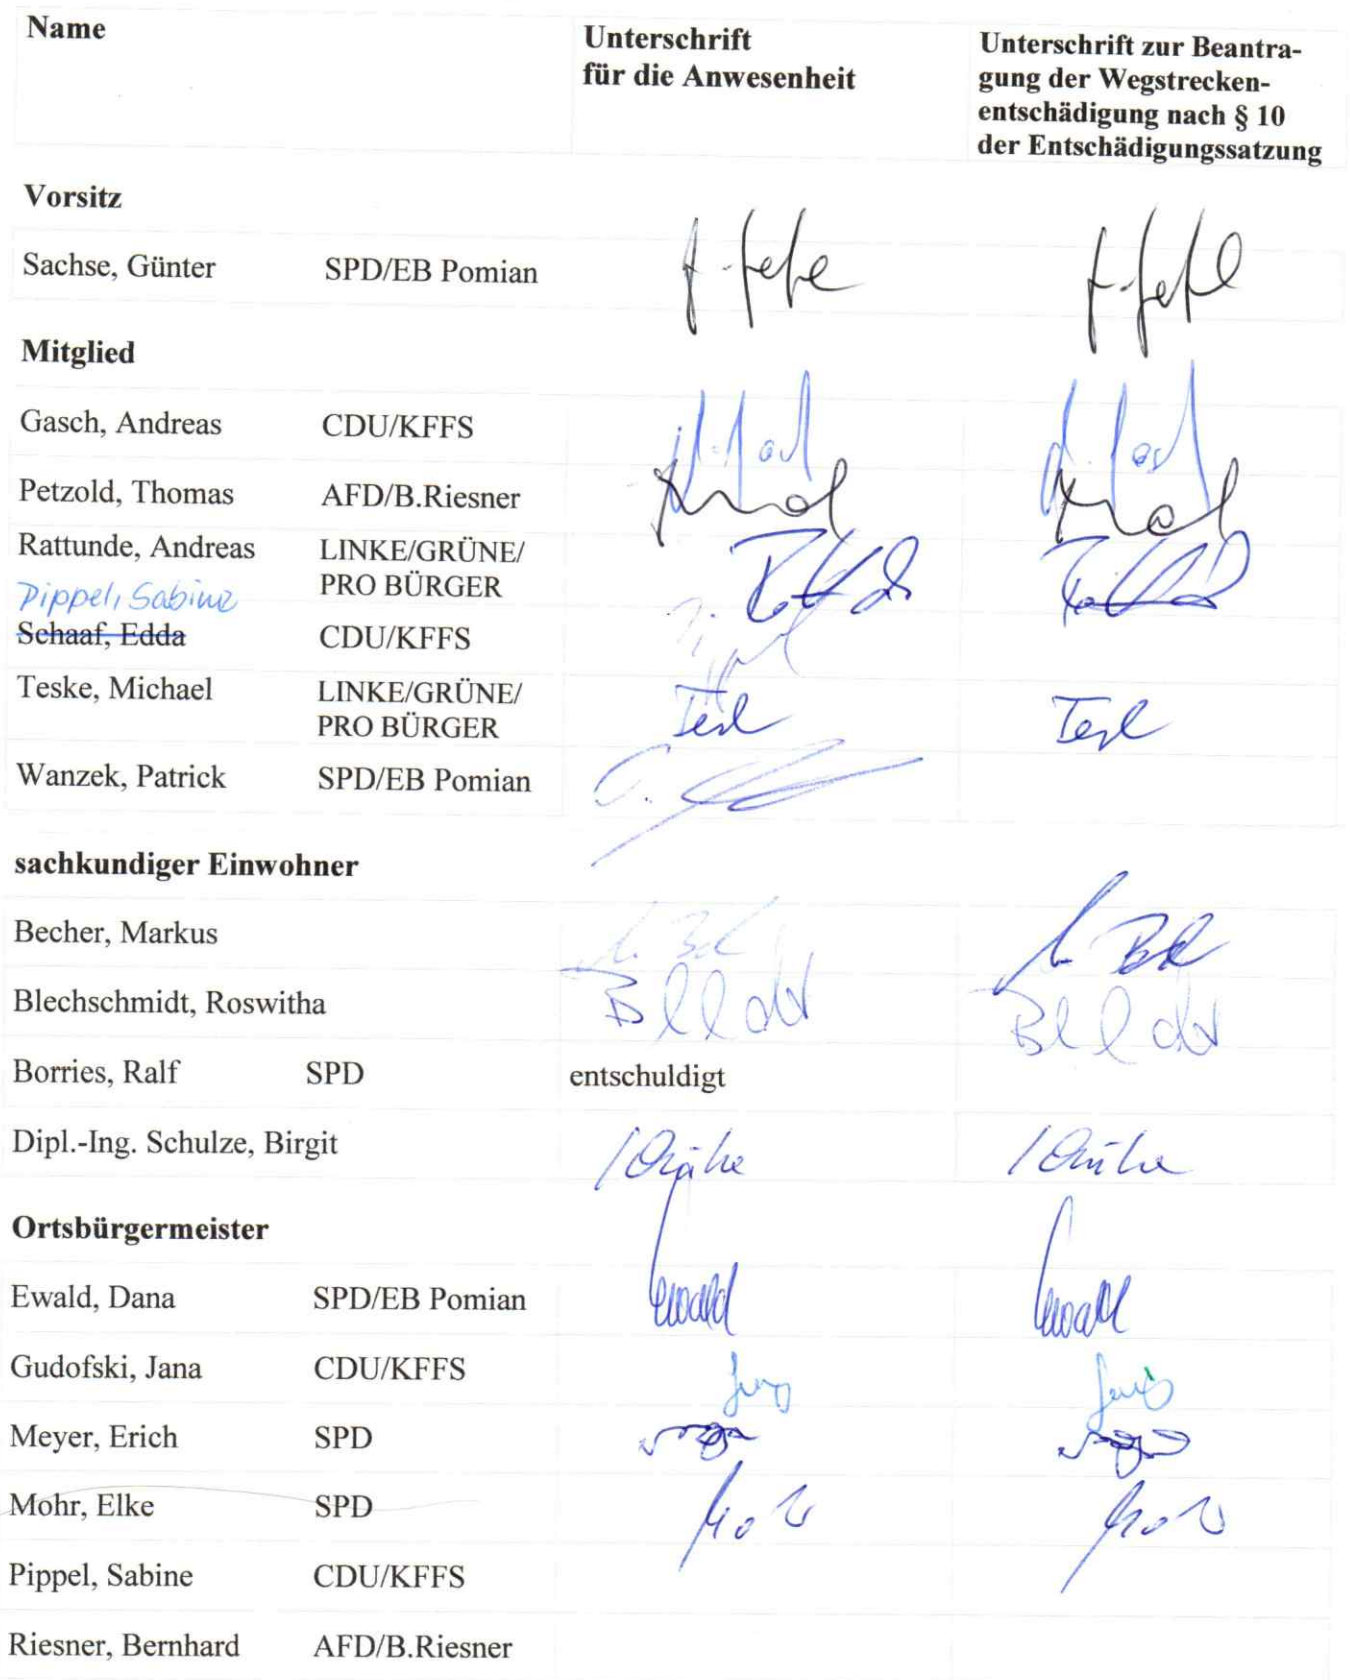 Name
Unterschrift
für die Anwesenheit
Unterschrift zur Beantra-
gung der Wegstrecken-
entschädigung nach § 10
der Entschädigungssatzung
Vorsitz
Sachse, Günter SPD/EB Pomian
Mitglied
Gasch, Andreas CDU/KFFS
Petzold, Thomas AFD/B.Riesner
Rattunde, Andreas LINKE/GRÜNE/
PRO BÜRGER
Pippel, Sabine
Schaaf, Edda CDU/KFFS
Teske, Michael LINKE/GRÜNE/
PRO BÜRGER
Wanzek, Patrick SPD/EB Pomian
sachkundiger Einwohner
Becher, Markus
Blechschmidt, Roswitha
Borries, Ralf SPD entschuldigt
Dipl.-Ing. Schulze, Birgit
Ortsbürgermeister
Ewald, Dana SPD/EB Pomian Ewald Ewald
Gudofski, Jana CDU/KFFS
Meyer, Erich SPD
Mohr, Elke SPD
Pippel, Sabine CDU/KFFS
Riesner, Bernhard AFD/B.Riesner